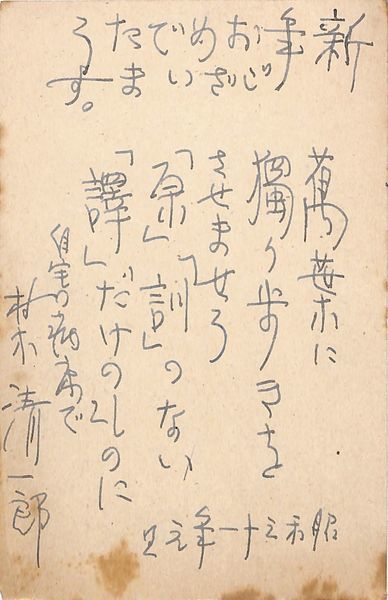 新年おめでたう
ございます。
萬葉に
獨り歩きを
させませう
「原」「訓」のない
「譯」だけのものに
昭和三十一年元旦
自宅の病床で
村木清一郎